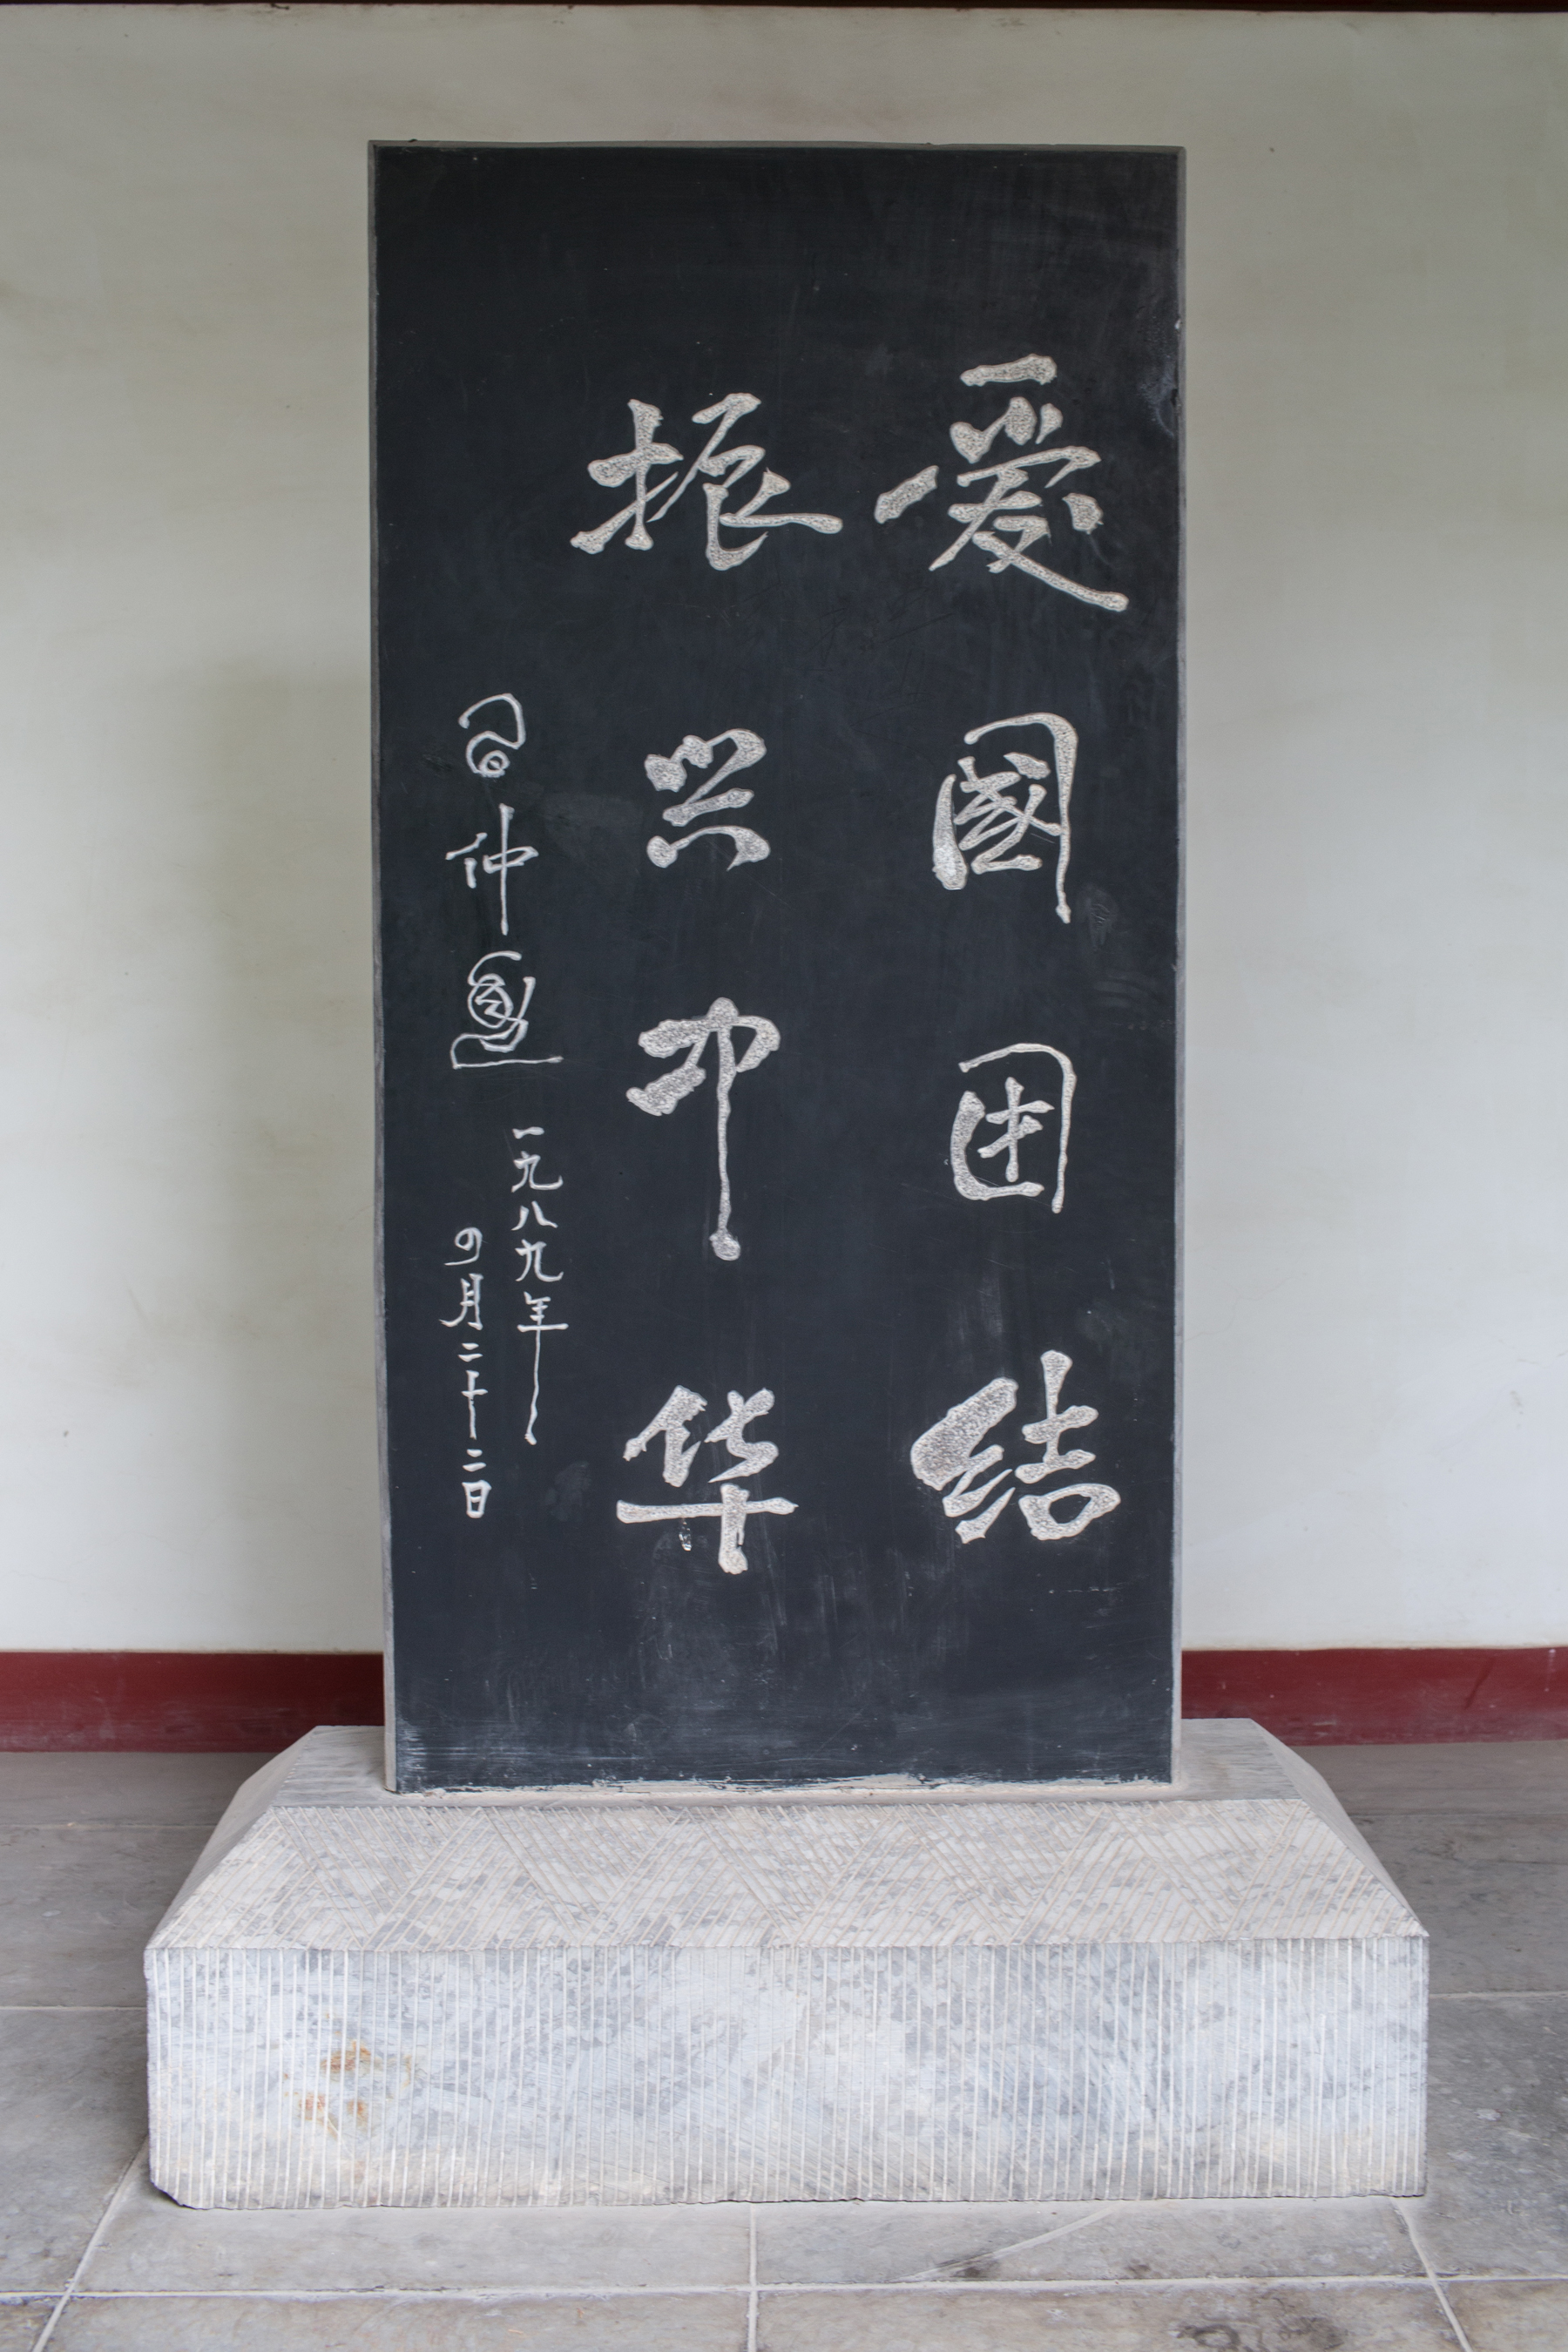 爱國团结
振兴中华
習仲勳
一九八九年
四月二十二日